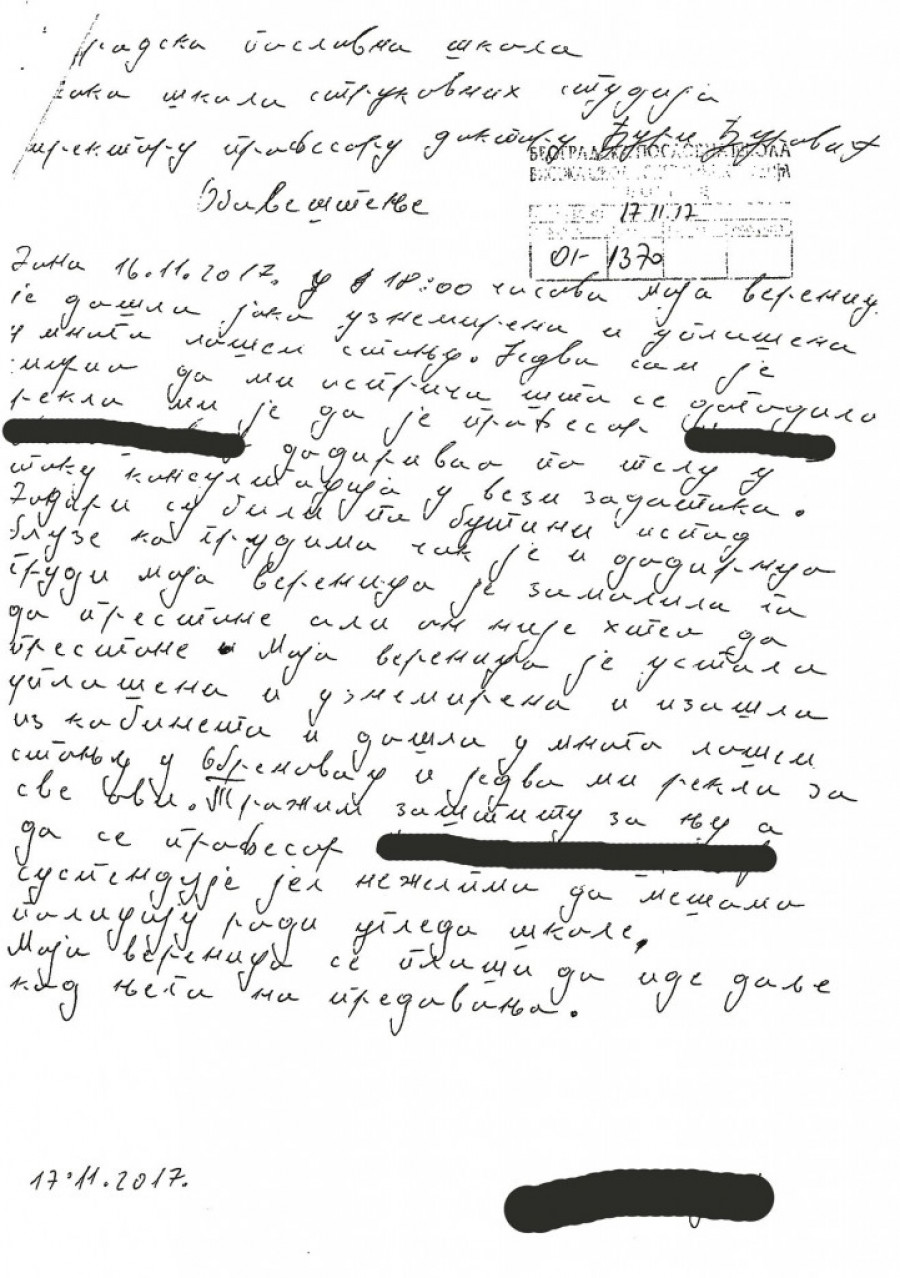 градска пословна школа
сока школа струковних студија
иректору професору доктору Ђури Ђуровић
БЕОГРАДСКА ПОСЛОВНА ШКОЛА
17 11. 17
01- 1370
Обавештење
Дана 16.11.2017. у 18:00 часова моја вереница
је дошла јако узнемирена и уплашена
у много лошем стању. Једва сам је
да ми исприча шта се догодило
рекла ми је да је професор
додиривао по телу у
току консултација у вези задатака.
Додири су били по бутини испод
блузе на грудима чак је и додирнуо
груди моја вереница је замолила га
да престане али он није хтео да
престане. Моја вереница је устала
уплашена и узнемирена и изашла
из кабинета и дошла у много лошем
стању у Обреновац и једва ми рекла за
све ово. Тражим заштиту за њу а
да се професор
суспендује јел нежелимо да мешамо
полицију ради угледа школе,
Моја вереница се плаши да иде даље
код њега на предавања.
17.11.2017.